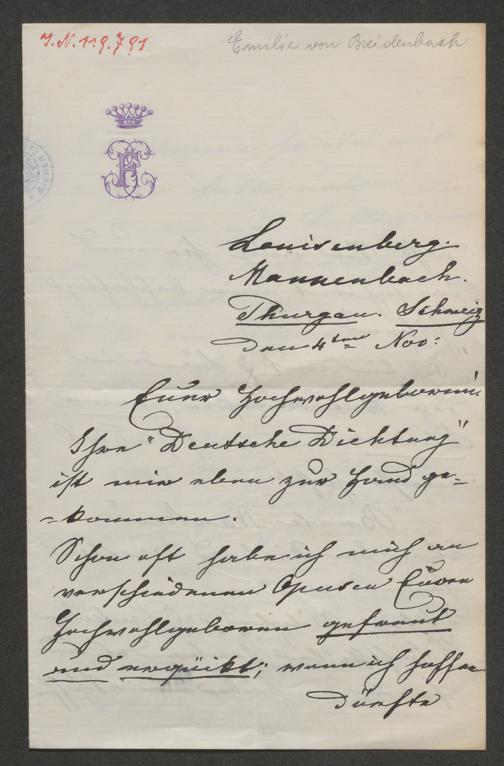 J.N. 119.791
Emilie von Breidenbach
Louisenberg.
Mannenbach.
Thurgau. Schweiz
Den 4ten Nov:
Euer Hochwohlgeboren!
Ihre "Deutsche Dichtung"
ist mir eben zur Hand ge-
-kommen.
Schon oft habe ich mich an
verschiedenen Opusen Euer
Hochwohlgeboren gefreut
und erquickt; wenn ich hoffen
dürfte